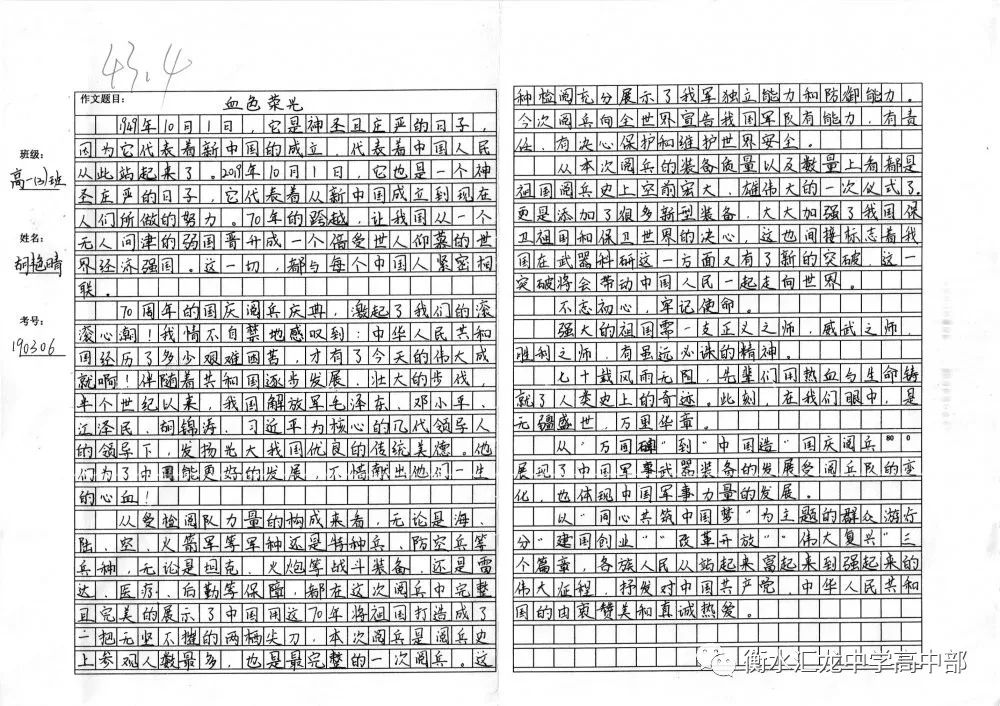 43.4
作文题目:
血色荣光
班级:
高一(3)班
姓名:
胡艳晴
考号:
190306
1949年10月1日，它是神圣且庄严的日子，
因为它代表着新中国的成立，代表着中国人民
从此站起来了。2019年10月1日，它也是一个神
圣庄严的日子，它代表着从新中国成立到现在
人们所做的努力。70年的跨越，让我国从一个
无人问津的弱国晋升成一个倍受世人仰慕的世
界经济强国。这一切，都与每个中国人紧密相
联。
70周年的国庆阅兵庆典，激起了我们的滚
滚心潮！我情不自禁地感叹到：中华人民共和
国经历了多少艰难困苦，才有了今天的伟大成
就啊！伴随着共和国逐步发展、壮大的步伐，
半个世纪以来，我国解放军毛泽东、邓小平、
江泽民、胡锦涛、习近平为核心的几代领导人
的领导下，发扬光大我国优良的传统美德。他
们为了中国能更好的发展，不惜献出他们一生
的心血！
从受检阅队力量的构成来看，无论是海、
陆、空、火箭军等军种还是特种兵、防空兵等
兵种，无论是坦克、火炮等战斗装备，还是雷
达、医疗、后勤等保障，都在这次阅兵中完整
且完美的展示了中国用这70年将祖国打造成了
一把无坚不摧的两栖尖刀。本次阅兵是阅兵史
上参观人数最多，也是最完整的一次阅兵。这
种检阅充分展示了我军独立能力和防御能力。
今次阅兵向全世界宣告我国军队有能力，有责
任，有决心保护和维护世界安全。
从本次阅兵的装备质量以及数量上看都是
祖国阅兵史上空前宏大、雄伟大的一次仪式了。
更是添加了很多新型装备，大大加强了我国保
卫祖国和保卫世界的决心，这也间接标志着我
国在武器科研这一方面又有了新的突破，这一
突破将会带动中国人民一起走向世界。
不忘初心，牢记使命。
强大的祖国需一支正义之师，威武之师，
胜利之师，有虽远必诛的精神。
七十载风雨无阻，先辈们用热血与生命铸
就了人类史上的奇迹。此刻，在我们眼中，是
无疆盛世，万里华章。
从“万国牌”到“中国造”国庆阅兵
800
展现了中国军事武器装备的发展受阅兵队的变
化，也体现中国军事力量的发展。
以“同心共筑中国梦”为主题的群众游行
分“建国创业”“改革开放”“伟大复兴”三
个篇章，各族人民从站起来富起来到强起来的
伟大征程，抒发对中国共产党、中华人民共和
国的由衷赞美和真诚热爱。
衡水汇龙中学高中部